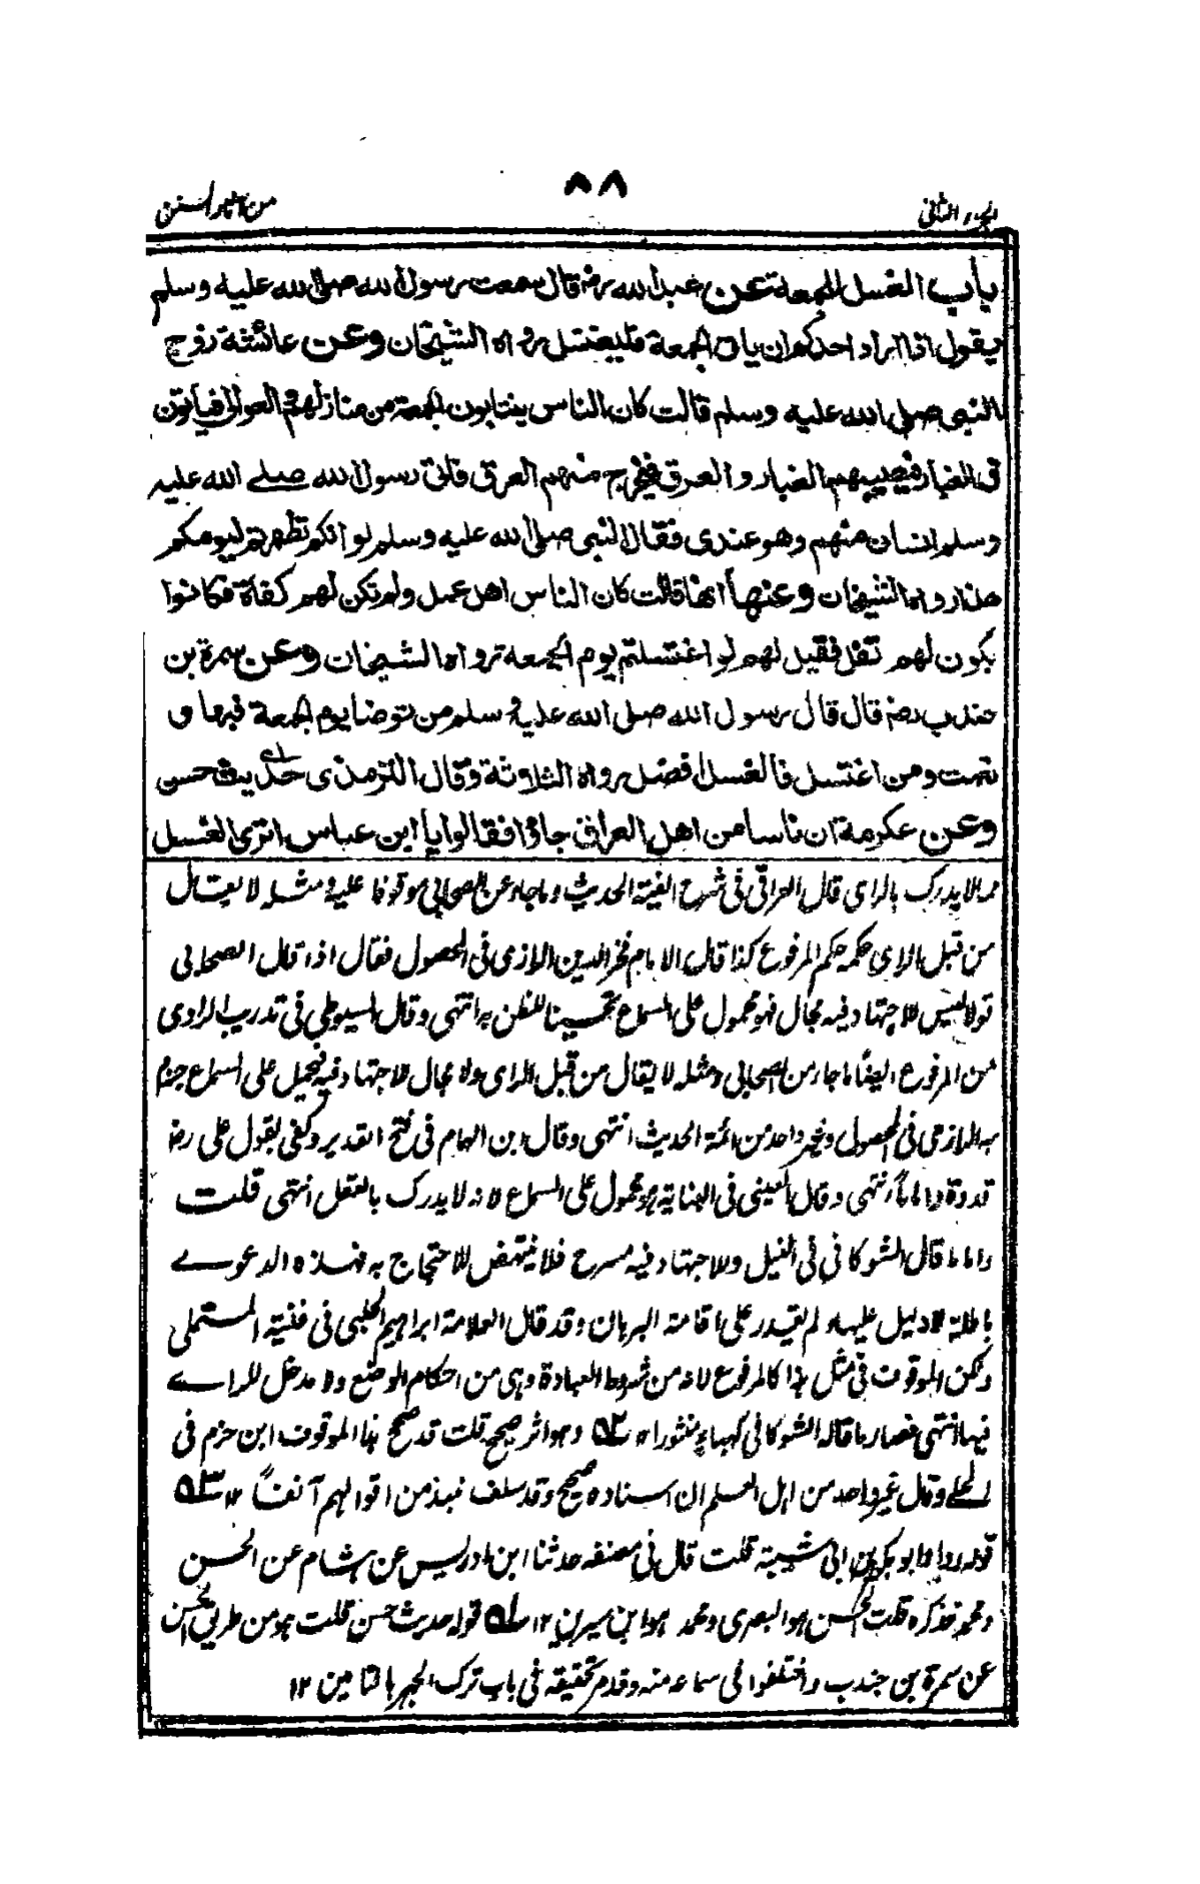 الجزء الثانی
٨٨
من آثار السنن
باب الغسل للجمعة عن عبد الله رضـ قال سمعت رسول الله صلى الله عليه وسلم
يقول اذا اراد احدكم ان ياتي الجمعة فليغتسل رواه الشيخان وعن عائشة زوج
النبي صلى الله عليه وسلم قالت كان الناس ينتابون الجمعة من منازلهم والعوالي فيأتون
في الغبار فيصيبهم الغبار والعرق فيخرج منهم العرق فاتى رسول الله صلے الله عليه
وسلم انسان منهم وهو عندى فقال النبى صلى الله عليه وسلم لو انكم تطهرتم ليومكم
هذا رواه الشيخان وعنها انها قالت كان الناس اهل عمل ولم تكن لهم كفاة فكانوا
يكون لهم تفل فقيل لهم لو اغتسلتم يوم الجمعة رواه الشيخان وعن سمرة بن
جندب رضـ قال قال رسول الله صلى الله عليه وسلم من توضأ يوم الجمعة فبها و
نعمت ومن اغتسل فالغسل افضل رواه الثلاثة وقال الترمذى حديث حسن
وعن عكرمة ان ناسا من اهل العراق جاؤا فقالوا يا ابن عباس اترى الغسل
مما لا يدرك بالراى قال العراقى فى شرح الفية الحديث وما جاء عن الصحابى موقوفا عليه ومثله لا يقال
من قبل الراى حكمه حكم المرفوع كذا قال الامام فخر الدين الرازى فى المحصول فقال اذا قال الصحابى
قولا ليس للاجتهاد فيه مجال فهو محمول على السماع تحسينا للظن به انتهى وقال السيوطى فى تدريب الراوى
من المرفوع ايضًا ما جاء من الصحابى ومثله لا يقال من قبل الراى ولا مجال للاجتهاد فيه فيحمل على السماع جزم
به الرازى فى المحصول وغير واحد من ائمة الحديث انتهى وقال ابن الهمام فى فتح القدير وكفى بقول على رضـ
قدوة واماما انتهى وقال العينى فى البناية هو محمول على السماع لانه لا يدرك بالعقل انتهى قلت
واما ما قال الشوكانى فى النيل وللاجتهاد فيه مسرح فلا ينتهض للاحتجاج به فهذه الدعوے
باطلة لا دليل عليها ولم يقدر على اقامة البرهان وقد قال العلامة ابراهيم الحلبى فى غنية المستملى
ولكن الموقوف فى مثل هذا كالمرفوع لانه من شروط العبادة وهى من احكام الوضع ولا مدخل للراے
فيها انتهى فصار ما قاله الشوكانى كهباء منثورا ١٢ ۵۲ وهو اثر صحيح قلت قد صحح هذا الموقوف ابن حزم فى
المحلى وقال غير واحد من اهل العلم ان اسناده صحيح وقد سلف نبذ من اقوالهم آنفًا ١٢ ۵۳
قوله رواه ابو بكر بن ابى شيبة قلت قال فى مصنفه حدثنا ابن ادريس عن هشام عن الحسن
ومحمد فذكره قلت الحسن هو البصرى ومحمد هو ابن سيرين ١٢ قوله حديث حسن قلت هو من طريق الحسن
عن سمرة بن جندب واختلفوا فى سماعه منه وقد مر تحقيقه فى باب ترك الجهر بالتامين ١٢